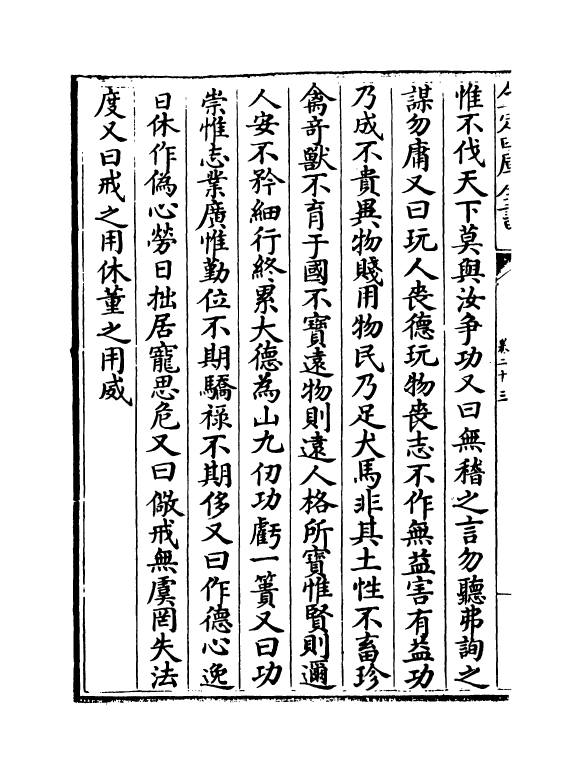 卷二十三
惟不伐天下莫與汝争功又曰無稽之言勿聽弗詢之
謀勿庸又曰玩人喪德玩物喪志不作無益害有益功
乃成不貴異物賤用物民乃足犬馬非其土性不畜珍
禽竒獸不育于國不寶遠物則遠人格所寶惟賢則邇
人安不矜細行終累大德為山九仞功虧一簣又曰功
崇惟志業廣惟勤位不期驕祿不期侈又曰作德心逸
日休作偽心勞日拙居寵思危又曰儆戒無虞罔失法
度又曰戒之用休董之用威